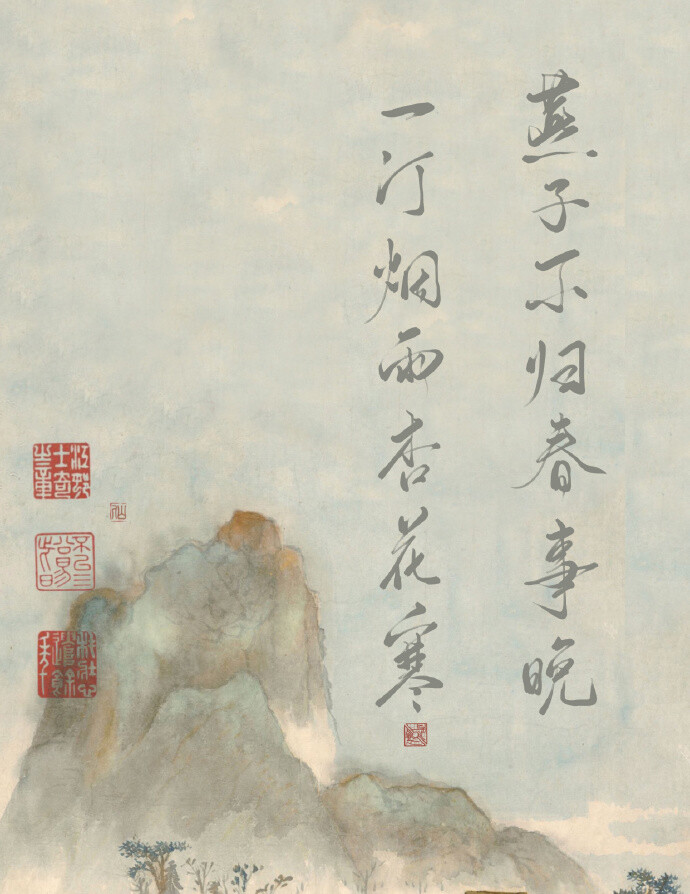 燕子不归春事晚
一汀烟雨杏花寒